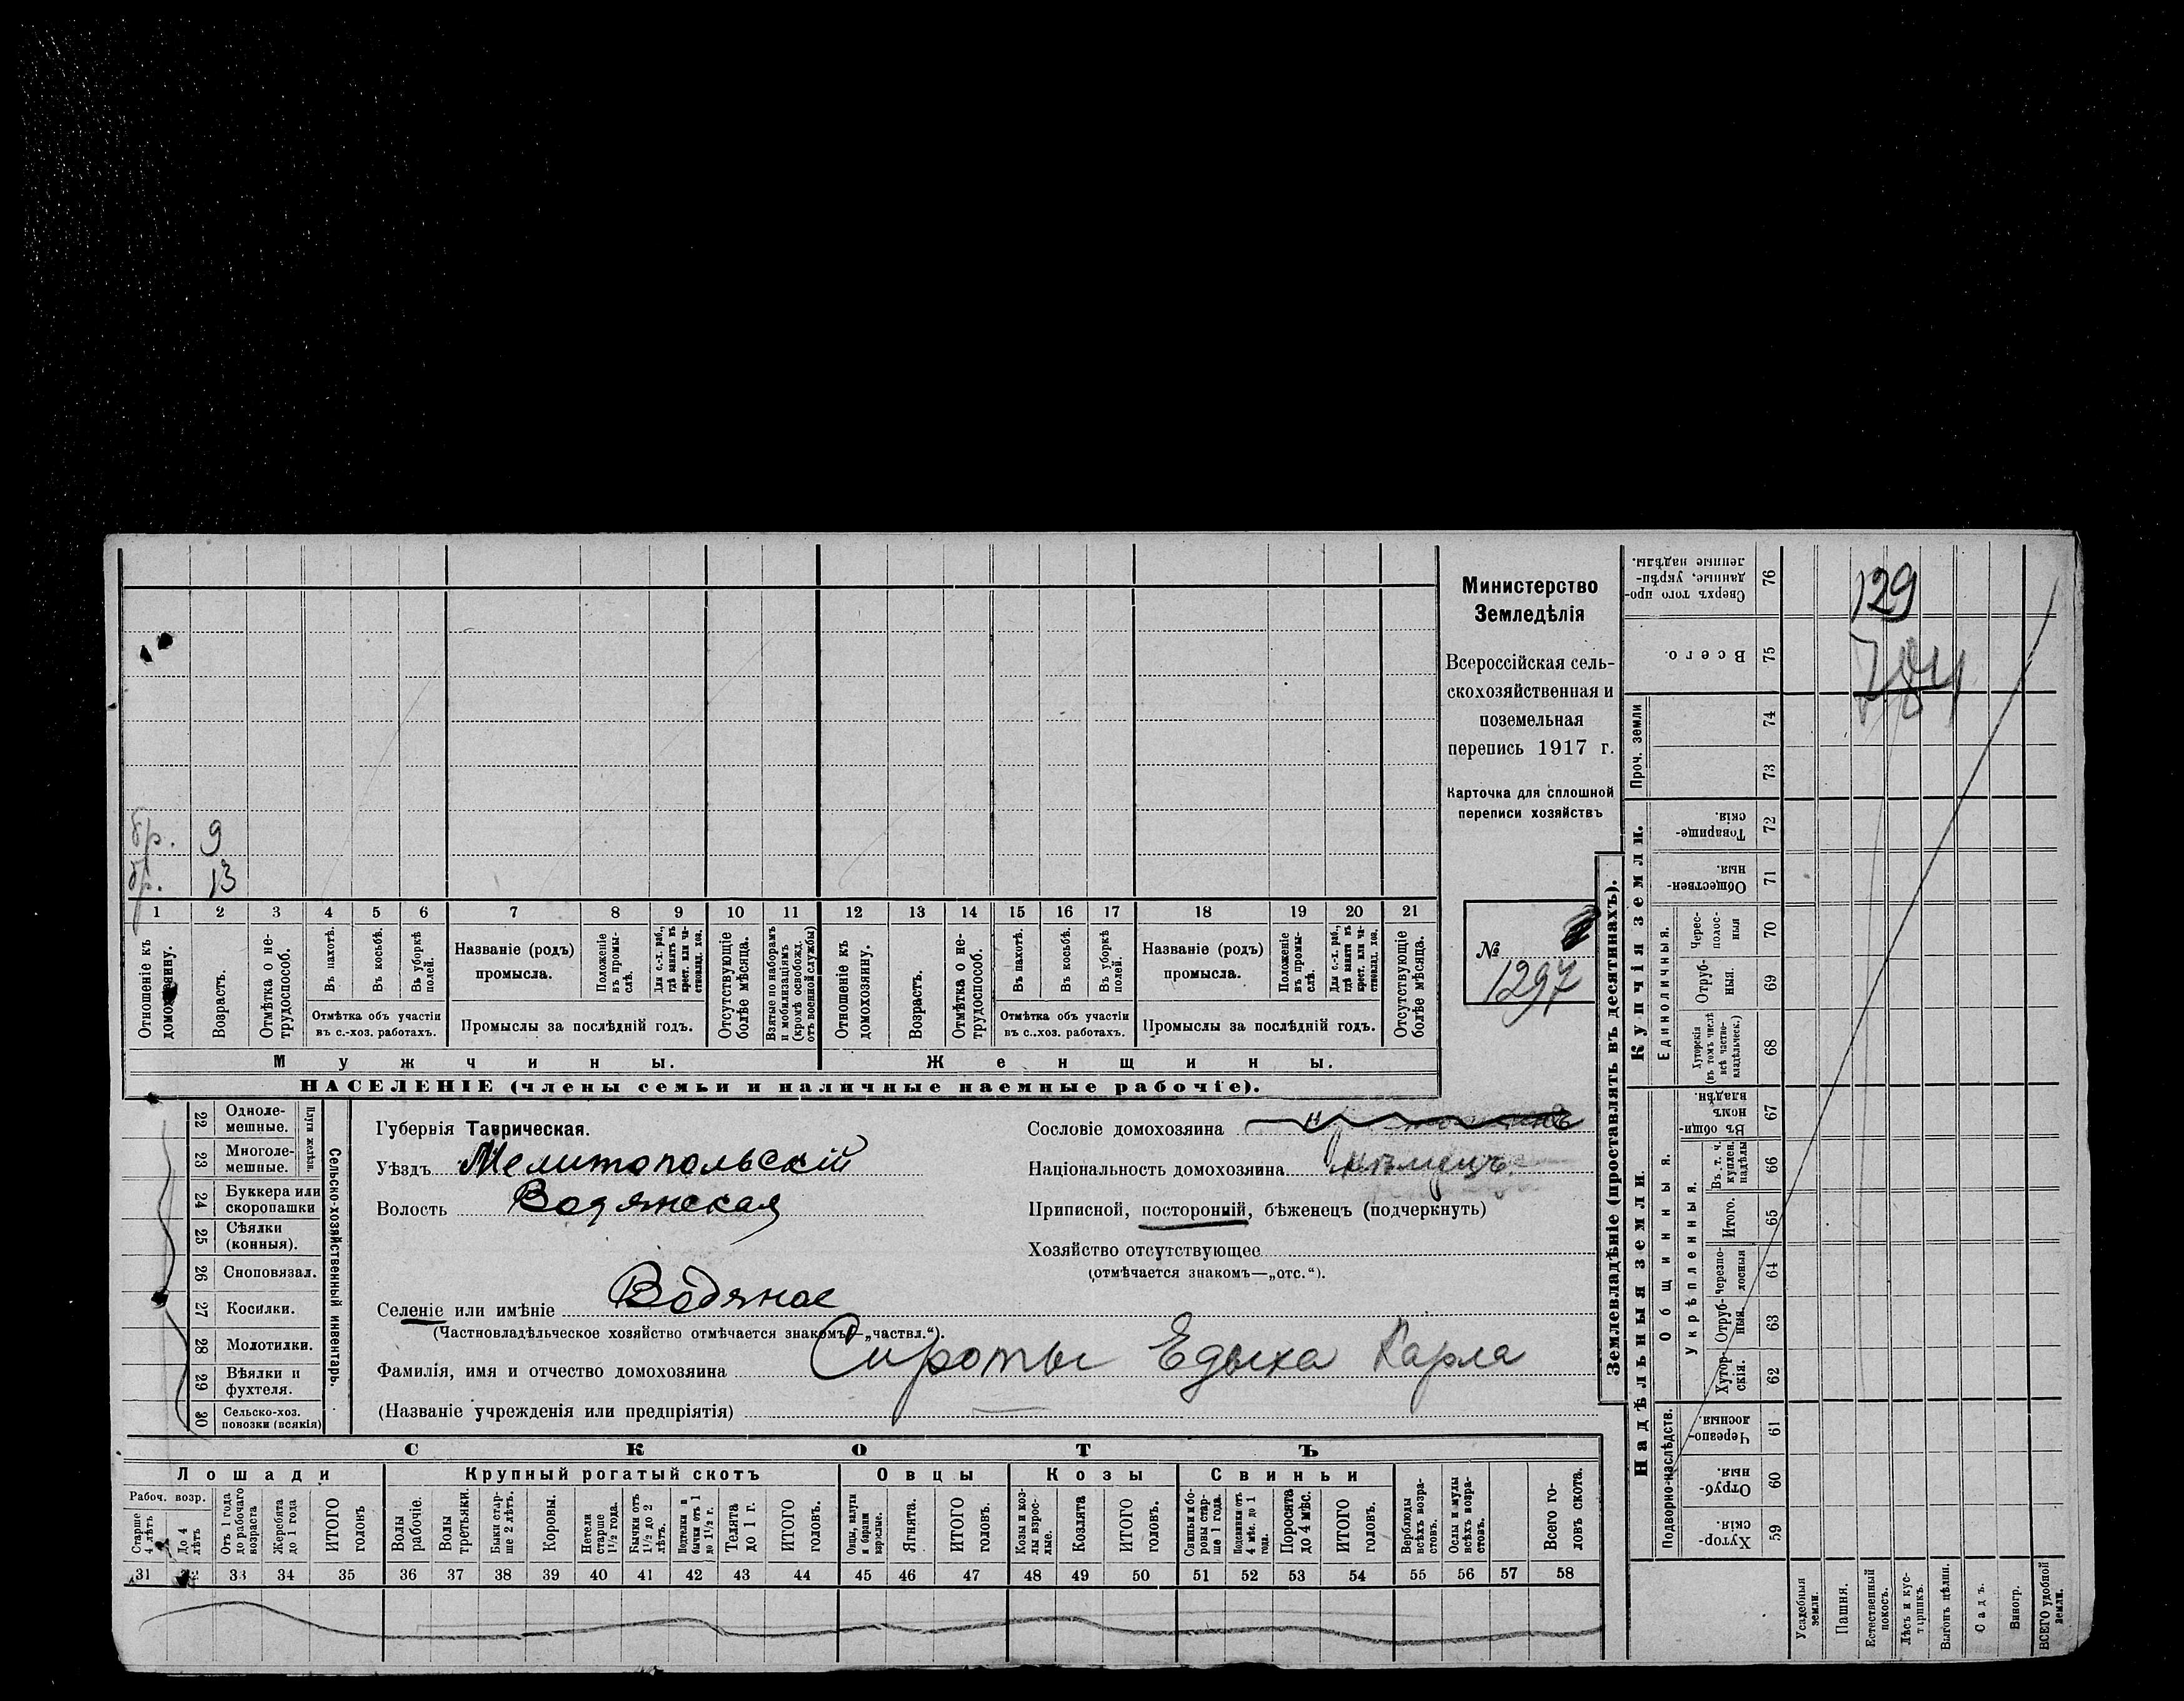 бр. 9
бр. 13
1 2 3 4 5 6 7 8 9 10 11 12 13 14 15 16 17 18 19 20 21
Отношеніе къ домохозяину.
Возрастъ.
Отмѣтка о не-трудоспособ.
Въ пахотѣ.
Въ косьбѣ.
Въ уборкѣ полей.
Отмѣтка объ участіи въ с.-хоз. работахъ.
Названіе (родъ) промысла.
Положеніе въ промы-слѣ.
Для с.-х. раб., гдѣ занятъ въ крест. или ча-стновлад. хоз.
Промыслы за послѣдній годъ.
Отсутствующіе болѣе мѣсяца.
Взятые по наборамъ и мобилизаціямъ (кромѣ освобожд. отъ военной службы)
Отношеніе къ домохозяину.
Возрастъ.
Отмѣтка о не-трудоспособ.
Въ пахотѣ.
Въ косьбѣ.
Въ уборкѣ полей.
Отмѣтка объ участіи въ с..хоз. работахъ.
Названіе (родъ) промысла.
Положеніе въ промы-слѣ.
Для с.-х. раб., гдѣ занята въ крест. или ча-стновлад. хоз.
Промыслы за послѣдній годъ.
Отсутствующіе болѣе мѣсяца.
Мужчины.
Женщины.
НАСЕЛЕНІЕ (члены семьи и наличные наемные рабочіе).
Министерство
Земледѣлія
Всероссійская сель-
скохозяйственная и
поземельная
перепись 1917 г.
Карточка для сплошной
переписи хозяйствъ
№
1297
22 Одноле-мешные.
23 Многоле-мешные.
Плуги желѣзн.
24 Буккера или скоропашки
25 Сѣялки (конныя).
26 Сноповязал.
27 Косилки.
28 Молотилки.
29 Вѣялки и фухтеля.
30 Сельско-хоз. повозки (всякія)
Сельско-хозяйственный инвентарь.
Губернія Таврическая.
Уѣздъ Мелитопольскій
Волость Водянская
Селеніе или имѣніе Водяное
(Частновладѣльческое хозяйство отмѣчается знакомъ—„частвл.“).
Фамилія, имя и отчество домохозяина Сироты Едыха Карла
(Названіе учрежденія или предпріятія)
Сословіе домохозяина
Національность домохозяина нѣмецъ
Приписной, посторонній, бѣженецъ (подчеркнуть)
Хозяйство отсутствующее
(отмѣчается знакомъ—„отс.“).
СКОТЪ
Лошади
Крупный рогатый скотъ
Овцы
Козы
Свиньи
Рабоч. возр.
Старше 4 лѣтъ
До 4 лѣтъ
Отъ 1 года до рабочаго возраста
Жеребята до 1 года
ИТОГО головъ
Волы рабочіе.
Волы третьяки.
Быки стар-ше 2 лѣтъ.
Коровы.
Нетели старше 1½ года.
Бычки отъ 1½ до 2 лѣтъ.
Подтелки и бычки отъ 1 до 1½ г.
Телята до 1 г.
ИТОГО головъ.
Овцы, валухи и бараны взрослые.
Ягнята.
ИТОГО головъ.
Козы и коз-лы взрос-лые.
Козлята
ИТОГО головъ.
Свиньи и бо-ровы стар-ше 1 года.
Подсвинки отъ 4 мѣс. до 1 года.
Поросята до 4 мѣс.
ИТОГО головъ.
Верблюды всѣхъ возра-стовъ.
Ослы и мулы всѣхъ возра-стовъ.
Всего го-ловъ скота.
31 32 33 34 35 36 37 38 39 40 41 42 43 44 45 46 47 48 49 50 51 52 53 54 55 56 57 58
Землевладѣніе (проставлять въ десятинахъ).
129
76 Сверхъ того про-данные, укрѣп-ленные надѣлы.
75 Всего.
Проч. земли
74
73
Купчія земли.
72 Товарище-скія.
71 Обществен-ныя.
Единоличныя.
70 Черес-полос-ныя
69 Отруб-ныя.
68 Хуторскія (въ томъ числѣ всѣ частно-владѣльческ.)
Надѣльныя земли.
Общинныя.
67 Въ общи-номъ владѣн.
Укрѣпленныя.
66 Въ т. ч. куплен. надѣлы
65 Итого.
64 черезпо-лосныя
63 Отруб-ныя.
62 Хутор-скія.
Подворно-наслѣдств.
61 Черезпо-лосныя.
60 Отруб-ныя.
59 Хутор-скія.
Усадебныя земли.
Пашня.
Естественный покосъ.
Лѣсъ и кус-тарникъ.
Выгонъ цѣлин.
Садъ.
Виногр.
ВСЕГО удобной земли.